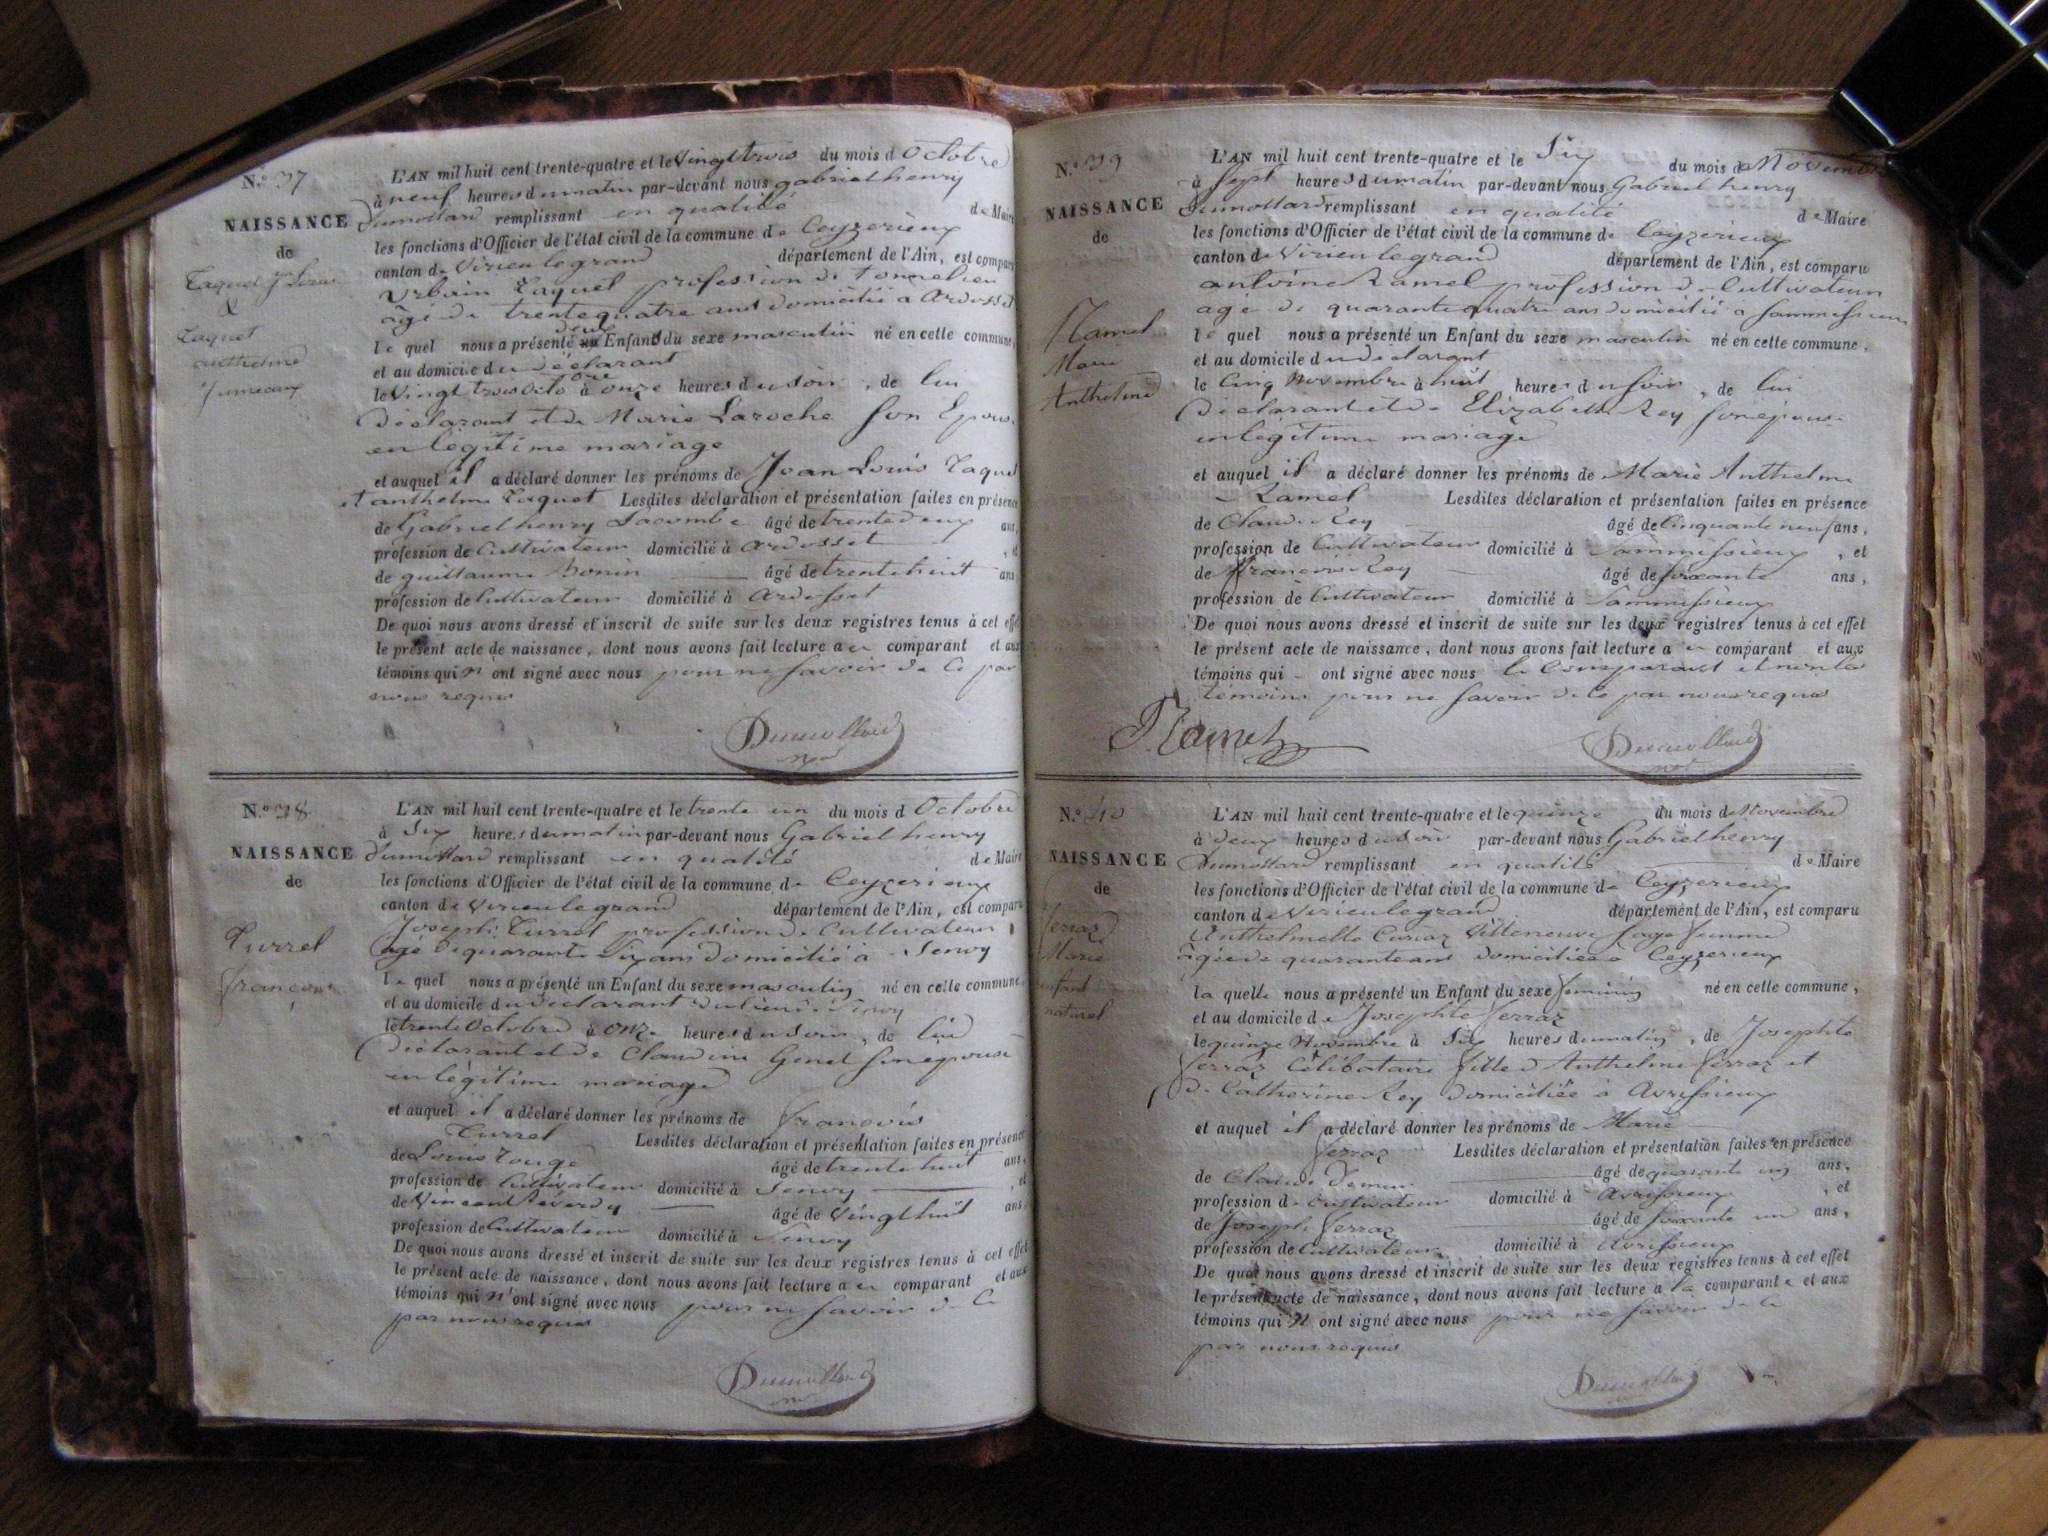 N.º 37
NAISSANCE
de
Taquet Jn Louis
&
Taquet
anthelme
Jumeaux
L'AN mil huit cent trente-quatre et le vingt trois du mois d'Octobre
à neuf heures du matin par-devant nous gabriel henry
Dumollard remplissant en qualité de Maire
les fonctions d'Officier de l'état civil de la commune de Ceyzerieux
canton de Virieu le grand département de l'Ain, est comparu
Urbain Taquet profession de tonnelier
âgé de trente quatre ans domicilié a Ardosset
le quel nous a présenté deux Enfans du sexe masculin né en cette commune,
et au domicile du déclarant
le vingt trois Octobre à onze heures du soir, de lui
Déclarant et de Marie Laroche son Epouse
en légitime mariage
et auquel il a déclaré donner les prénoms de Jean Louis Taquet
et anthelme Taquet Lesdites déclaration et présentation faites en présence
de Gabriel henry Jacombe âgé de trente deux ans,
profession de Cultivateur domicilié à Ardosset, et
de guillaume Bonin âgé de trente huit ans,
profession de Cultivateur domicilié à Ardosset
De quoi nous avons dressé et inscrit de suite sur les deux registres tenus à cet effet
le présent acte de naissance, dont nous avons fait lecture au comparant et aux
témoins qui n'ont signé avec nous pour ne savoir de ce par
nous requis
Dumollard
N.º 38
NAISSANCE
de
Turrel
françois
L'AN mil huit cent trente-quatre et le trente un du mois d'Octobre
à Six heures du matin par-devant nous Gabriel henry
Dumollard remplissant en qualité de Maire
les fonctions d'Officier de l'état civil de la commune de Ceyzerieux
canton de Virieu le grand département de l'Ain, est comparu
Joseph Turrel profession de Cultivateur
âgé de quarante Six ans domicilié à Senoy
le quel nous a présenté un Enfant du sexe masculin né en cette commune,
et au domicile du déclarant au lieu de Senoy
le trente Octobre à onze heures du soir, de lui
Déclarant et de Claudine Genet son epouse
en légitime mariage
et auquel il a déclaré donner les prénoms de françois
Turrel Lesdites déclaration et présentation faites en présence
de Louis âgé de trente huit ans,
profession de Cultivateur domicilié à Senoy, et
de Vincent Reverdy âgé de vingt huit ans,
profession de Cultivateur domicilié à Senoy
De quoi nous avons dressé et inscrit de suite sur les deux registres tenus à cet effet
le présent acte de naissance, dont nous avons fait lecture au comparant et aux
témoins qui n'ont signé avec nous pour ne savoir de ce
par nous requis
Dumollard
N.º 39
NAISSANCE
de
Ramel
Marie
Anthelme
L'AN mil huit cent trente-quatre et le Six du mois de Novembre
à Sept heures du matin par-devant nous Gabriel henry
Dumollard remplissant en qualité de Maire
les fonctions d'Officier de l'état civil de la commune de Ceyzerieux
canton de Virieu le grand département de l'Ain, est comparu
antoine Ramel profession de Cultivateur
agé de quarante quatre ans domicilié a Sammissieux
le quel nous a présenté un Enfant du sexe masculin né en cette commune,
et au domicile du déclarant
le Cinq Novembre à huit heures du soir, de lui
Déclarant et de Elizabeth Rey son épouse
en légitime mariage
et auquel il a déclaré donner les prénoms de Marie Anthelme
Ramel Lesdites déclaration et présentation faites en présence
de Claude Rey âgé de cinquante neuf ans,
profession de Cultivateur domicilié à Sammissieux, et
de francois Rey âgé de soixante ans,
profession de Cultivateur domicilié à Sammissieux
De quoi nous avons dressé et inscrit de suite sur les deux registres tenus à cet effet
le présent acte de naissance, dont nous avons fait lecture au comparant et aux
témoins qui - ont signé avec nous le Comparant et non les
témoins pour ne savoir de ce par nous requis
Ramel
Dumollard
N.º 40
NAISSANCE
de
ferraz
Marie
enfant
naturel
L'AN mil huit cent trente-quatre et le quinze du mois de Novembre
à deux heures du soir par-devant nous Gabriel henry
Dumollard remplissant en qualité de Maire
les fonctions d'Officier de l'état civil de la commune de Ceyzerieux
canton de Virieu le grand département de l'Ain, est comparu
Anthelmette Curiaz Villeneuve Sage femme
âgée de quarante ans domiciliée a Ceyzerieux
la quelle nous a présenté un Enfant du sexe féminin né en cette commune,
et au domicile de Josephte ferraz
le quinze Novembre à Six heures du matin, de Josephte
ferraz Célibataire fille d'Anthelme ferraz et
de Catherine Rey domiciliée à Avrissieux
et auquel il a déclaré donner les prénoms de Marie
ferraz Lesdites déclaration et présentation faites en présence
de Claude âgé de quarante un ans,
profession de Cultivateur domicilié à Avrissieux, et
de Joseph ferraz âgé de soixante un ans,
profession de Cultivateur domicilié à Avrissieux
De quoi nous avons dressé et inscrit de suite sur les deux registres tenus à cet effet
le présent acte de naissance, dont nous avons fait lecture a la comparante et aux
témoins qui n'ont signé avec nous pour ne savoir de ce
par nous requis
Dumollard